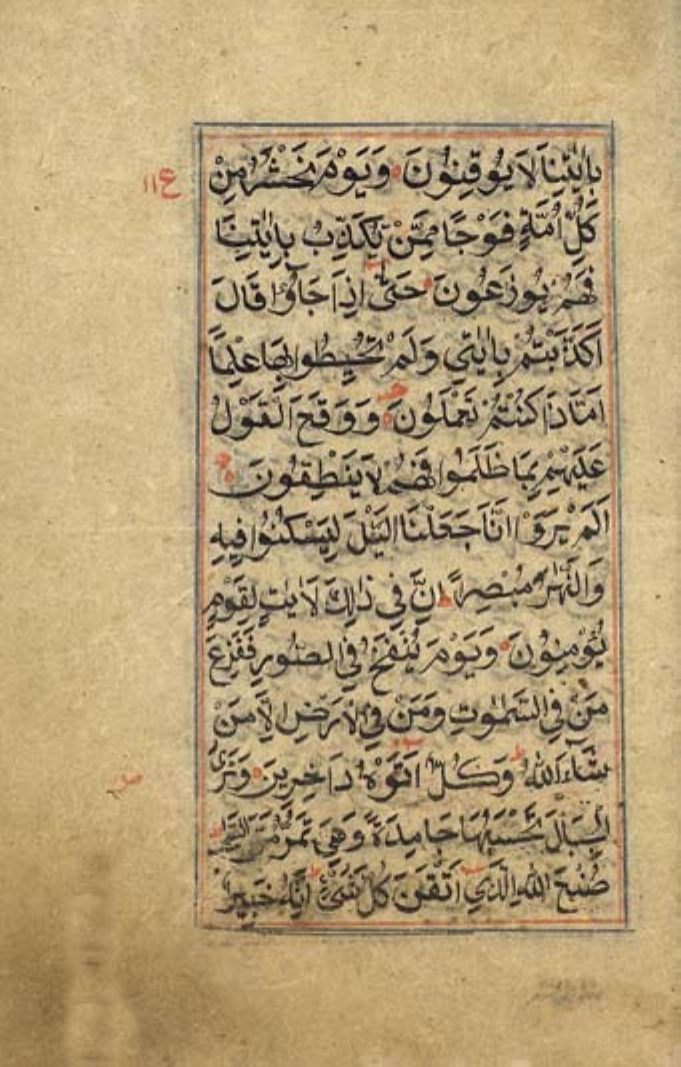 بِاٰيٰتِنَا لَا يُوقِنُونَ وَيَوْمَ نَحْشُرُ مِنْ
ع ۱۱
كُلِّ اُمَّةٍ فَوْجًا مِمَّنْ يُكَذِّبُ بِاٰيٰتِنَا
فَهُمْ يُوزَعُونَ حَتّٰى اِذَا جَاؤُا قَالَ
اَكَذَّبْتُمْ بِاٰيٰتِي وَلَمْ تُحِيطُوا بِهَا عِلْمًا
اَمَّا ذَا كُنْتُمْ تَعْمَلُونَ وَوَقَعَ الْقَوْلُ
عَلَيْهِمْ بِمَا ظَلَمُوا فَهُمْ لَا يَنْطِقُونَ
اَلَمْ يَرَوْا اَنَّا جَعَلْنَا الَّيْلَ لِيَسْكُنُوا فِيهِ
وَالنَّهَارَ مُبْصِرًا اِنَّ فِي ذٰلِكَ لَاٰيٰتٍ لِقَوْمٍ
يُؤْمِنُونَ وَيَوْمَ يُنْفَخُ فِي الصُّورِ فَفَزِعَ
مَنْ فِي السَّمٰوٰتِ وَمَنْ فِي الْاَرْضِ اِلَّا مَنْ
شَآءَ اللّٰهُ وَكُلٌّ اَتَوْهُ دَاخِرِينَ وَتَرَى
الْجِبَالَ تَحْسَبُهَا جَامِدَةً وَهِيَ تَمُرُّ مَرَّ السَّحَابِ
صُنْعَ اللّٰهِ الَّذِي اَتْقَنَ كُلَّ شَيْءٍ اِنَّهُ خَبِيرٌ